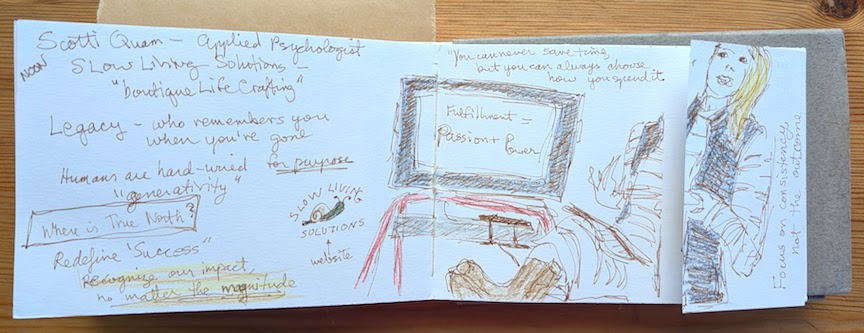 Scotti Quam - Applied Psychologist
NOON
SLow Living Solutions -
"boutique Life Crafting"
Legacy - who remembers you
when you're gone
Humans are hard-wired for purpose
"generativity"
Where is True North?
Redefine 'Success"
Recognize our impact,
no matter the magnitude
SLOW LIVING
SOLUTIONS
website
"You can never save time,
but you can always choose
how you spend it
Fulfillment =
Passion + Power
Focus on consistency
not the outcome